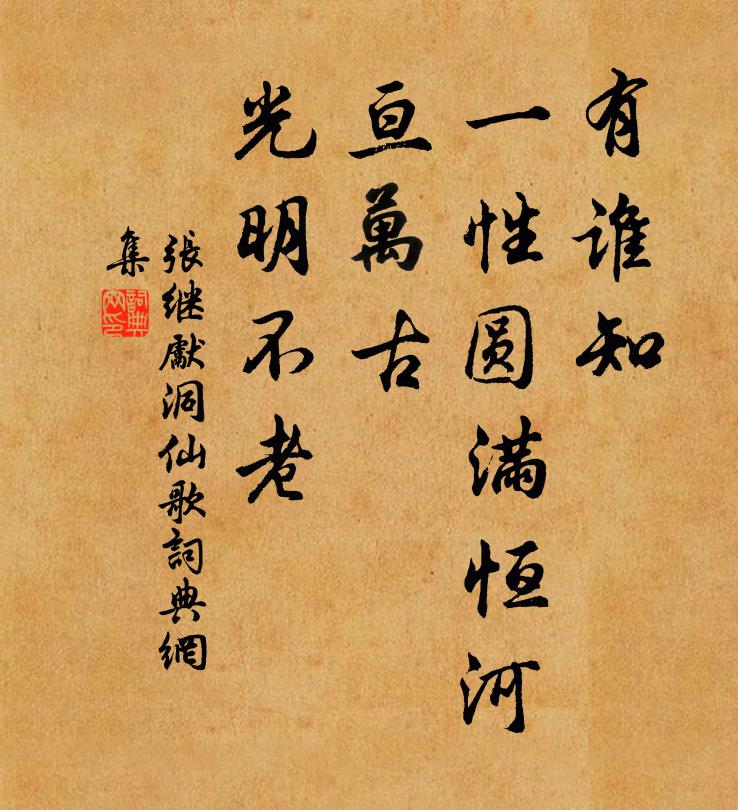 有谁知
一性圆满恒河
亘萬古
光明不老
張继獻洞仙歌詞典網
集
詞典
网印